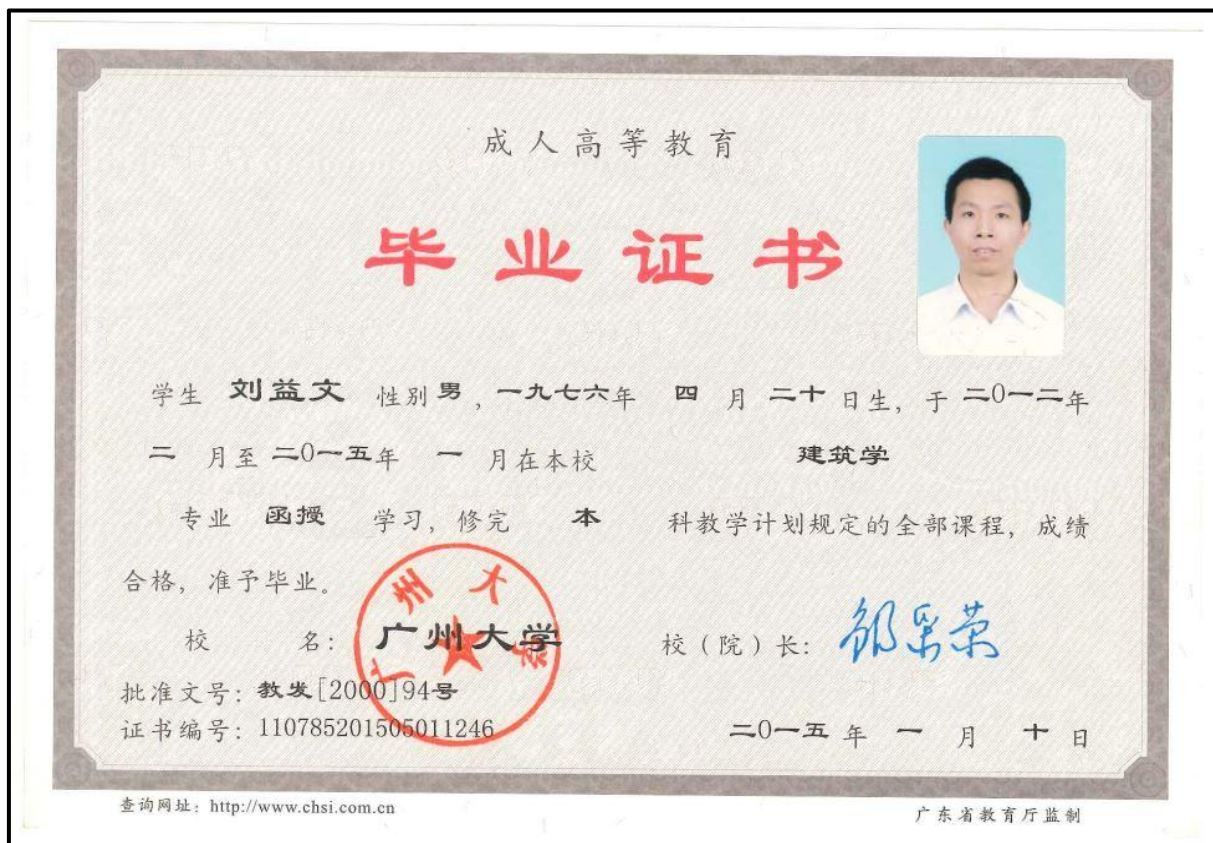 成人高等教育
毕业证书
学生 刘益文 性别 男，一九七六年 四 月 二十 日生，于 二0一二年
二 月至 二0一五年 一 月在本校 建筑学
专业 函授 学习，修完 本 科教学计划规定的全部课程，成绩
合格，准予毕业。
校 名：广州大学 校（院）长：
广州大学
批准文号：教发[2000]94号
证书编号：110785201505011246 二0一五 年 一 月 十 日
查询网址：http://www.chsi.com.cn 广东省教育厅监制